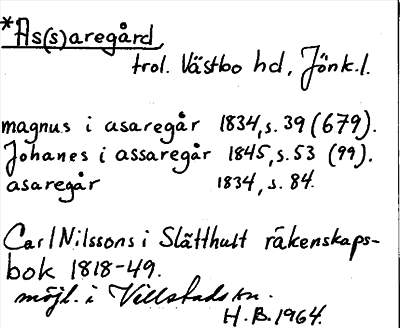 *As(s)aregård
trol. Västbo hd, Jönk.l.
magnus i asaregår 1834, s. 39 (679).
Johanes i assaregår 1845, s. 53 (99).
asaregår 1834, s. 84.
Carl Nilssons i Slätthult räkenskaps-
bok 1818-49.
möjl. i Villstads sn.
H.B. 1964.